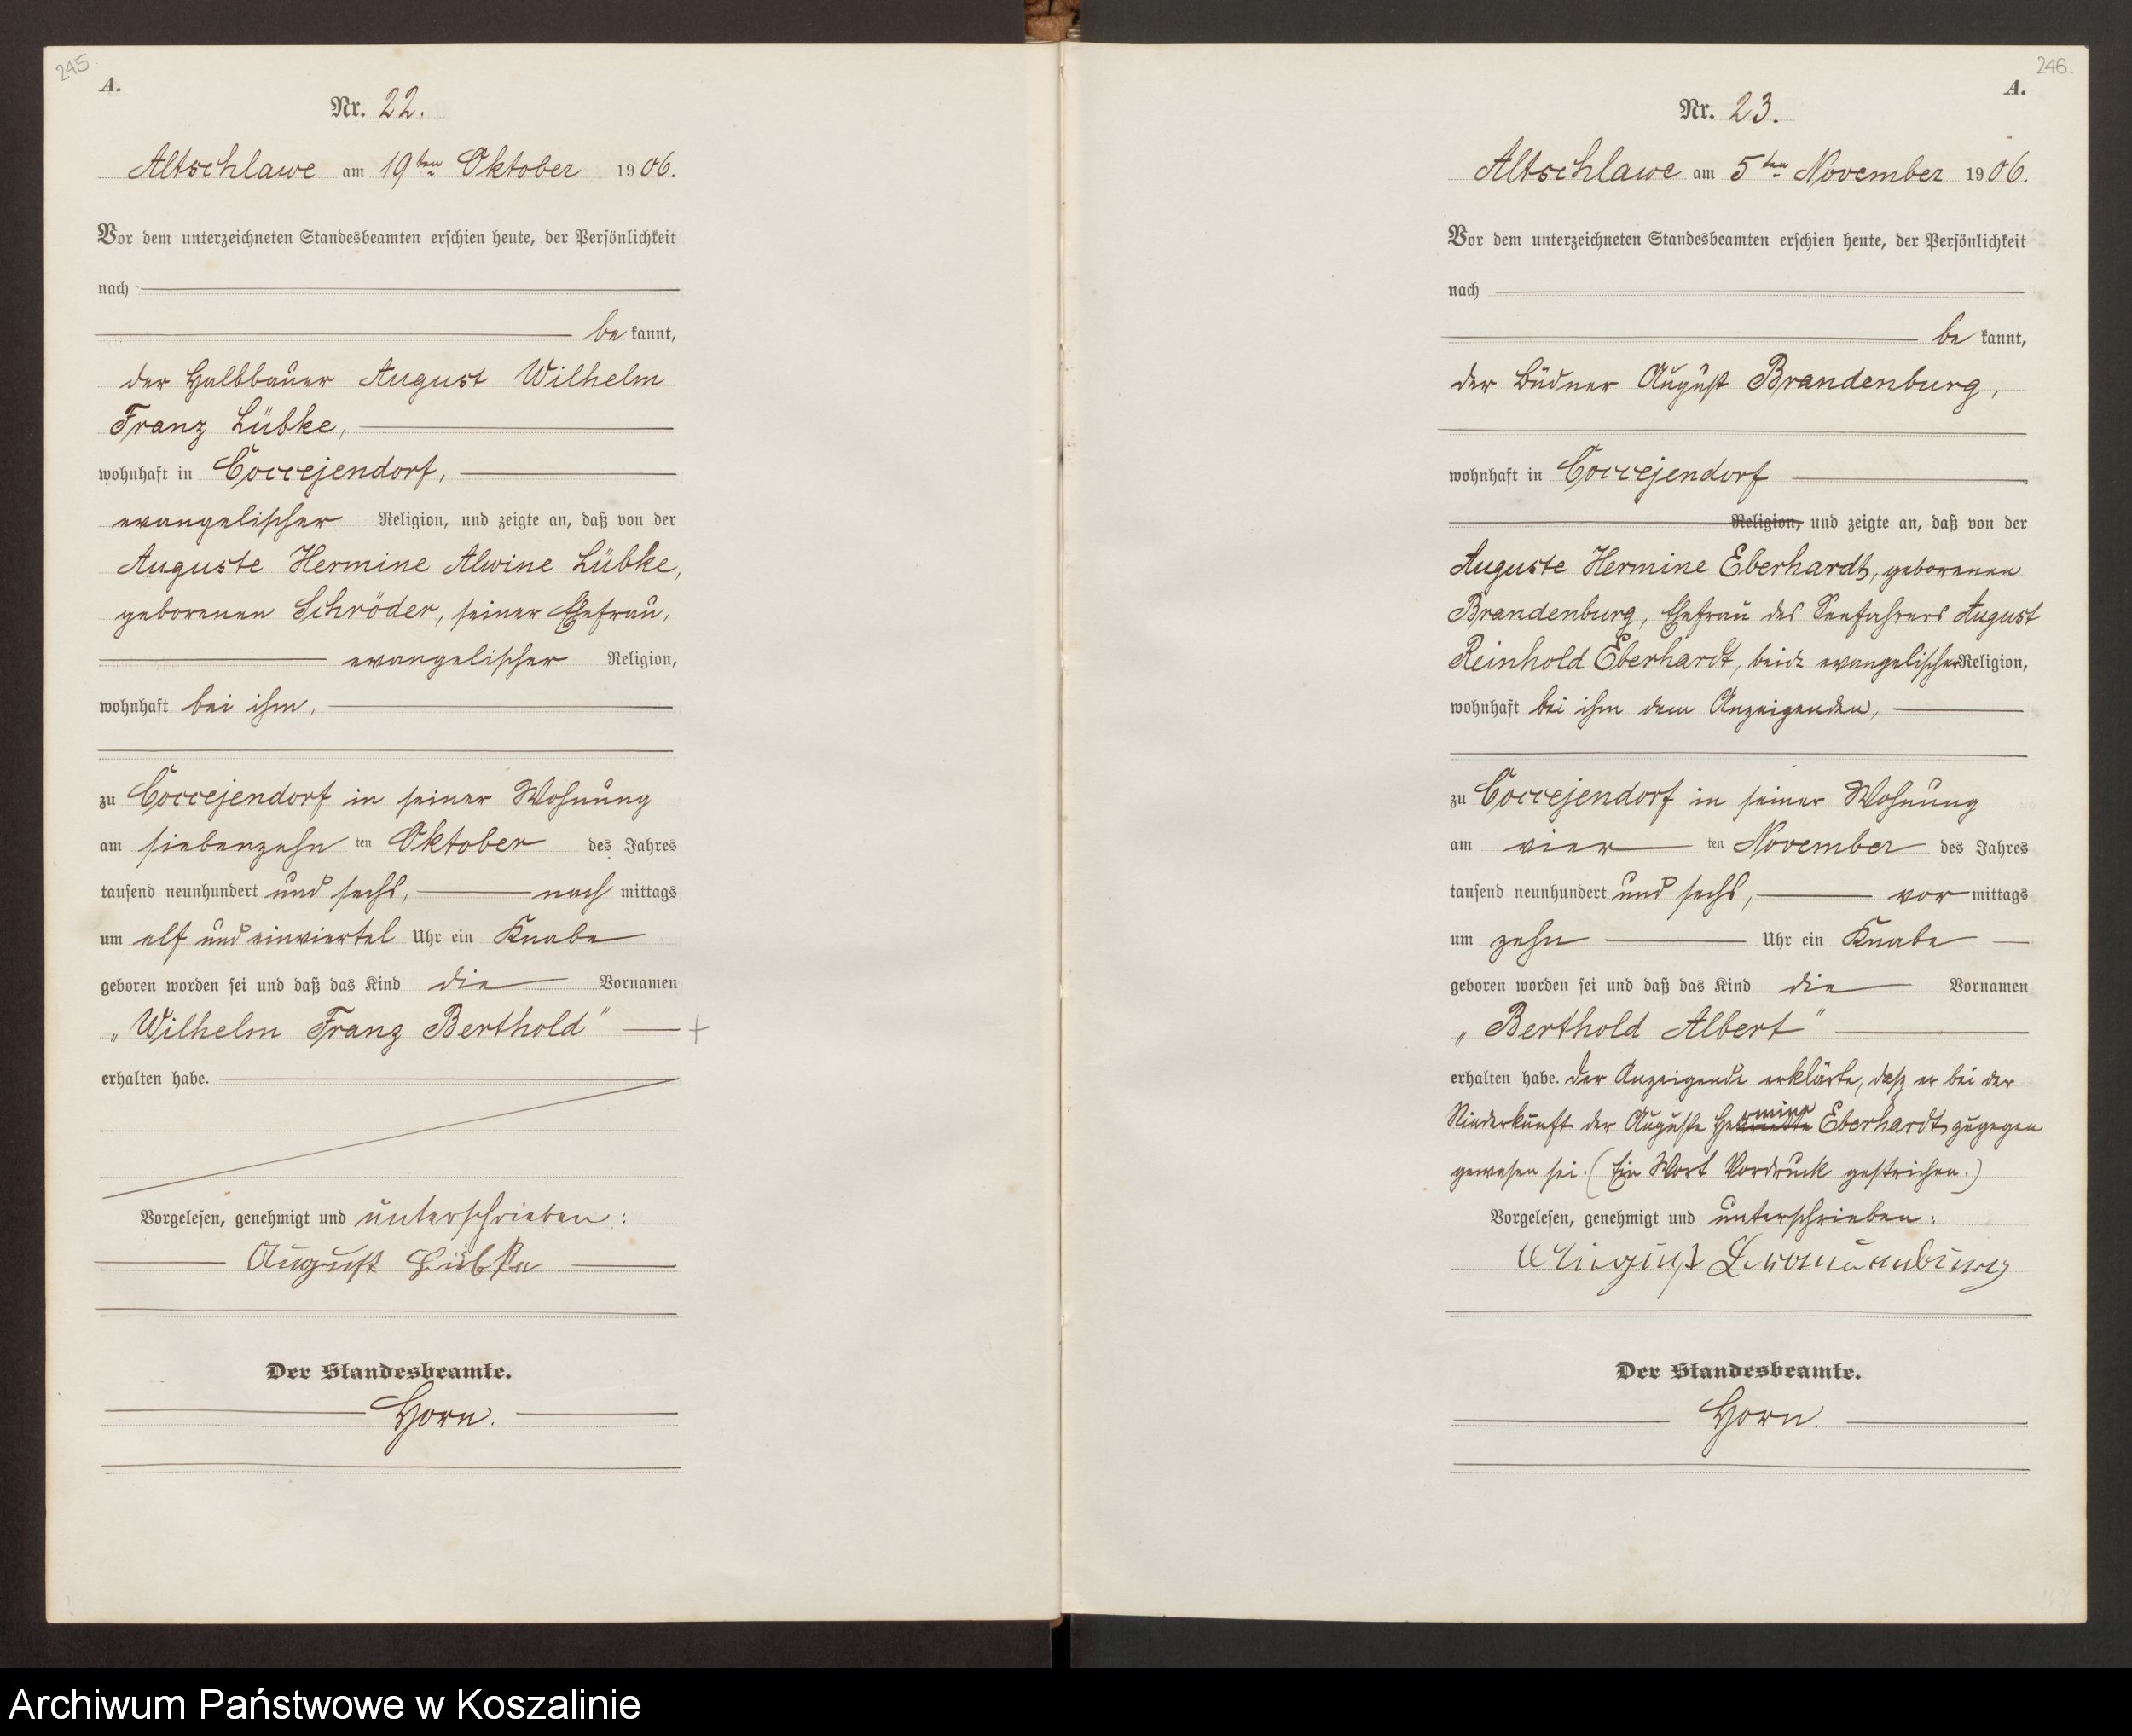 245.
A.
Nr. 22.
Altschlawe am 19ten Oktober 1906.
Vor dem unterzeichneten Standesbeamten erschien heute, der Persönlichkeit
nach
be kannt,
der Halbbauer August Wilhelm
Franz Lübke,
wohnhaft in Coccejendorf,
evangelischer Religion, und zeigte an, daß von der
Auguste Hermine Alwine Lübke,
geborenen Schröder, seiner Ehefrau,
evangelischer Religion,
wohnhaft bei ihm,
zu Coccejendorf in seiner Wohnung
am siebenzehn ten Oktober des Jahres
tausend neunhundert und sechs, nach mittags
um elf und einviertel Uhr ein Knabe
geboren worden sei und daß das Kind die Vornamen
„Wilhelm Franz Berthold“ +
erhalten habe.
Vorgelesen, genehmigt und unterschrieben:
August Lübke
Der Standesbeamte.
Horn.
246.
A.
Nr. 23.
Altschlawe am 5ten November 1906.
Vor dem unterzeichneten Standesbeamten erschien heute, der Persönlichkeit
nach
be kannt,
der Büdner August Brandenburg,
wohnhaft in Coccejendorf
Religion, und zeigte an, daß von der
Auguste Hermine Eberhardt, geborenen
Brandenburg, Ehefrau des Seefahrers August
Reinhold Eberhardt, beide evangelischer Religion,
wohnhaft bei ihm dem Anzeigenden,
zu Coccejendorf in seiner Wohnung
am vier ten November des Jahres
tausend neunhundert und sechs, vor mittags
um zehn Uhr ein Knabe
geboren worden sei und daß das Kind die Vornamen
„Berthold Albert“
erhalten habe. Der Anzeigende erklärte, daß er bei der
Niederkunft der Auguste Hermine Eberhardt zugegen
gewesen sei. (Ein Wort Vordruck gestrichen.)
Vorgelesen, genehmigt und unterschrieben:
August Brandenburg
Der Standesbeamte.
Horn.
Archiwum Państwowe w Koszalinie